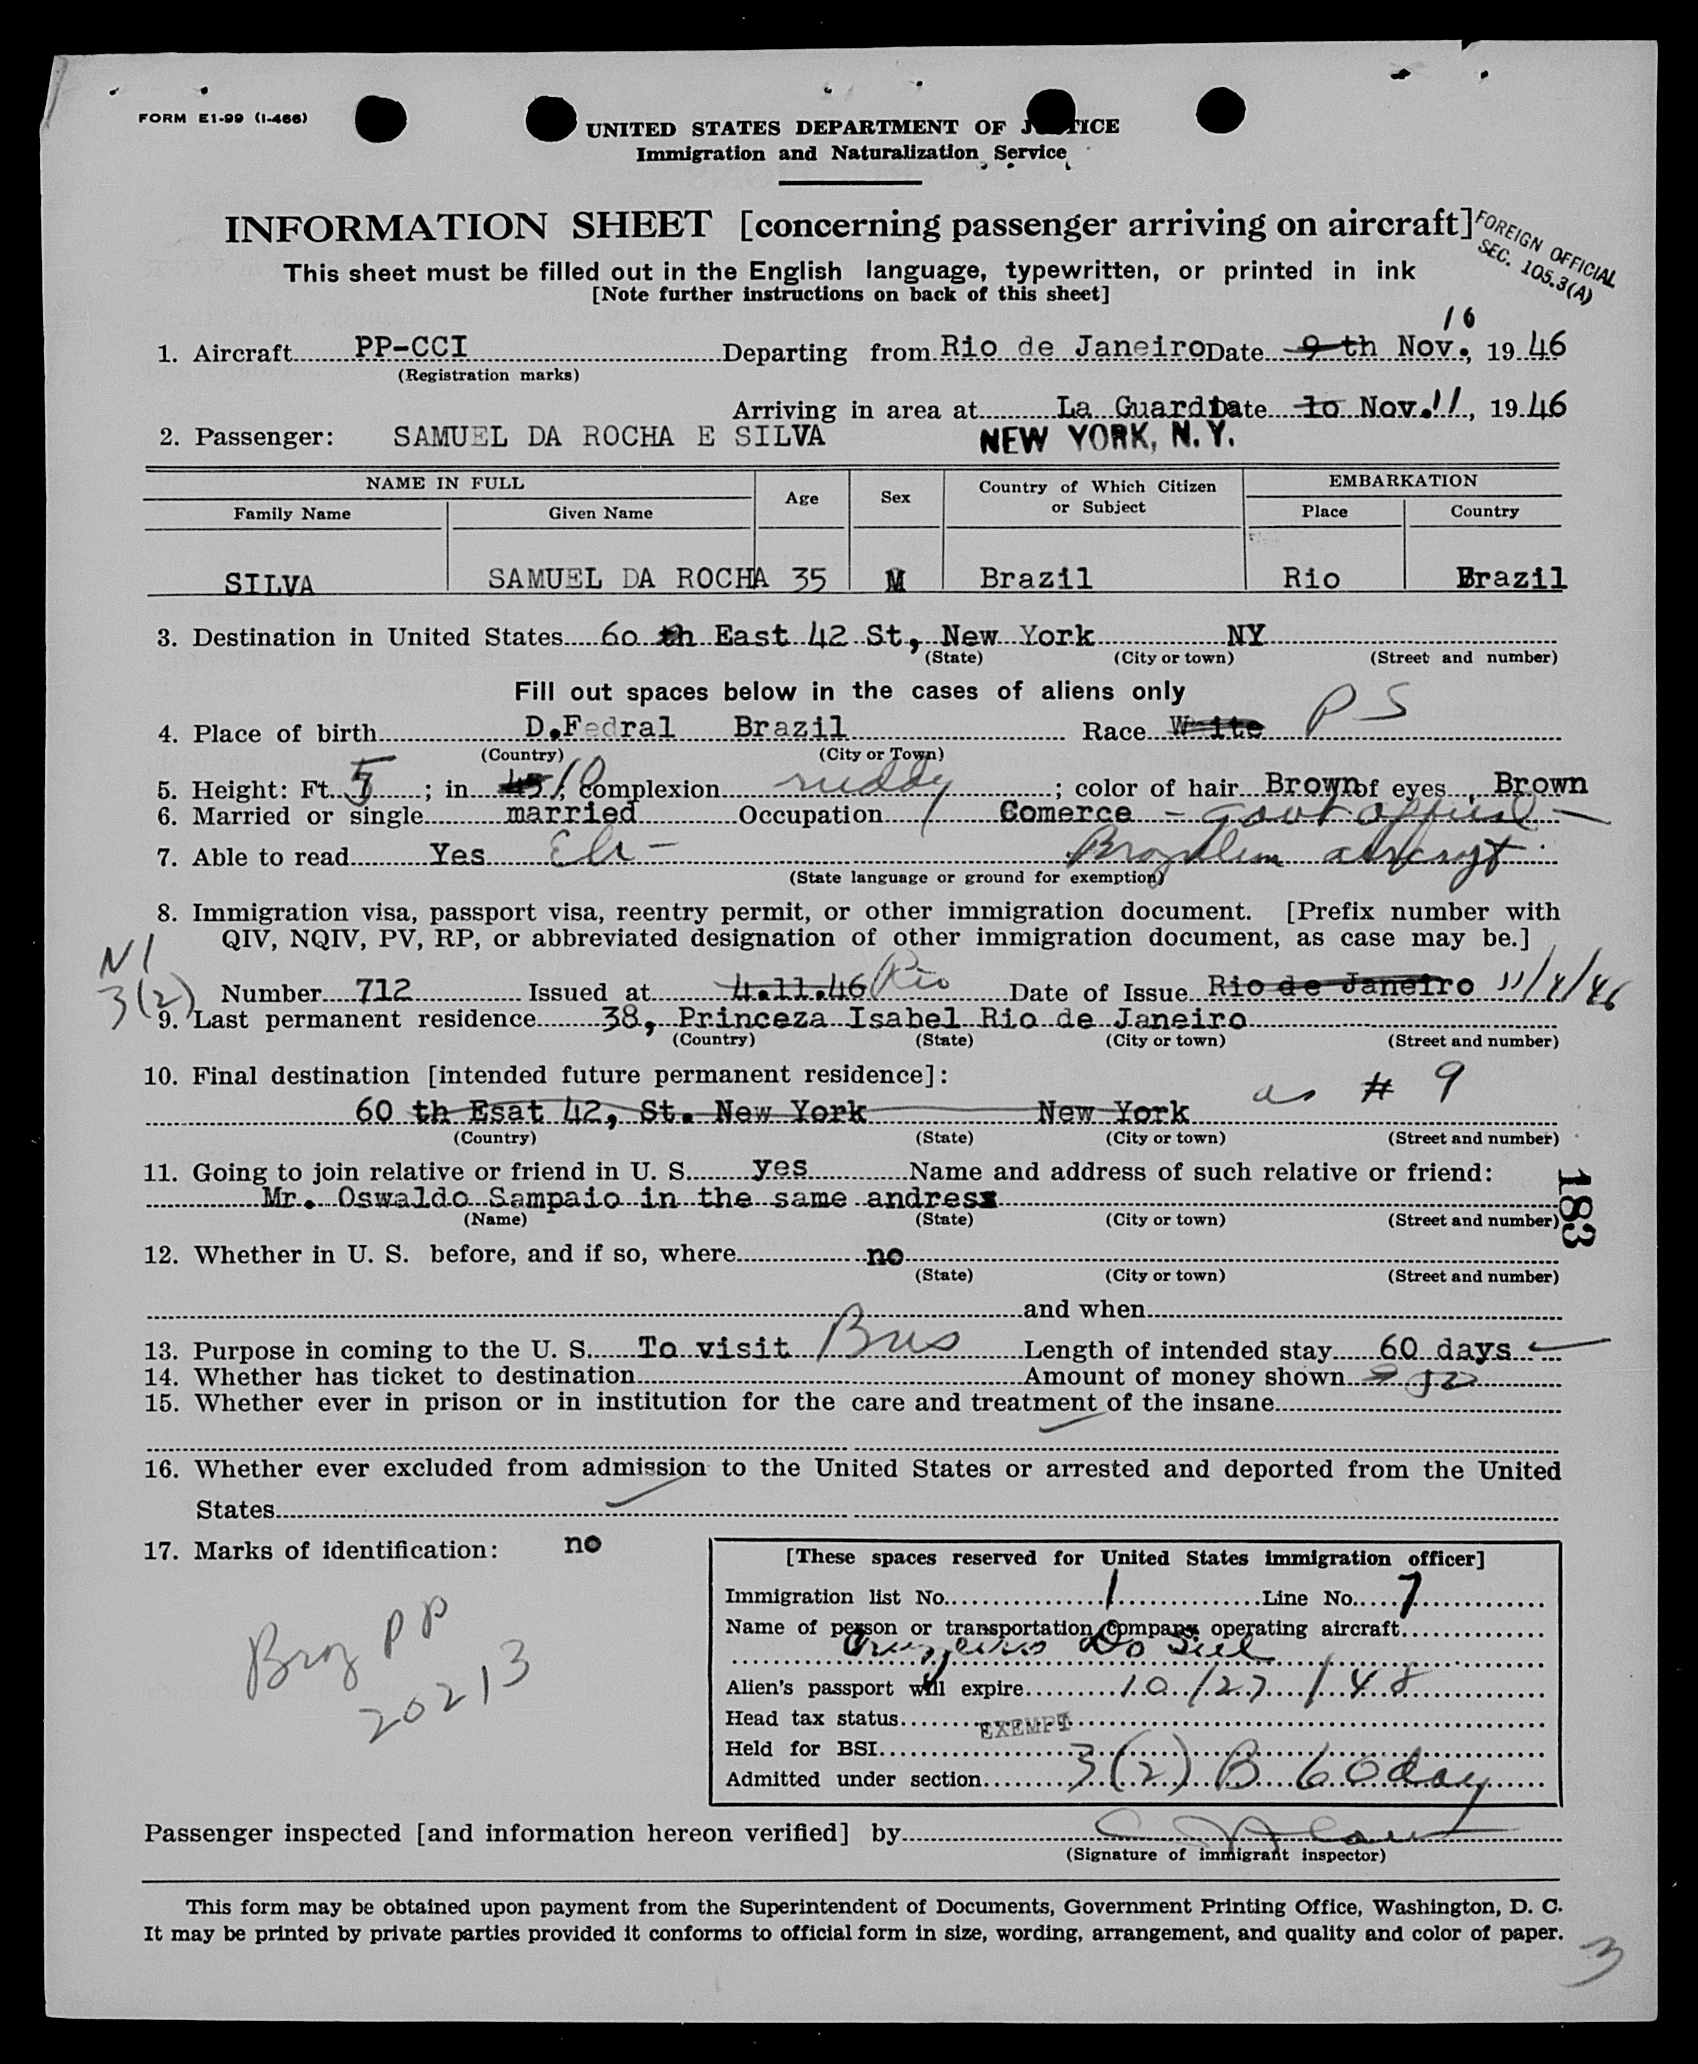 FORM E1-99 (I-466)
UNITED STATES DEPARTMENT OF JUSTICE
Immigration and Naturalization Service
INFORMATION SHEET [concerning passenger arriving on aircraft]
FOREIGN OFFICIAL
SEC. 105.3(A)
This sheet must be filled out in the English language, typewritten, or printed in ink
[Note further instructions on back of this sheet]
10
1. Aircraft PP-CCI Departing from Rio de Janeiro Date 9 th Nov., 19 46
(Registration marks)
Arriving in area at La Guardia Date 10 Nov. 11, 19 46
2. Passenger: SAMUEL DA ROCHA E SILVA NEW YORK, N.Y.
NAME IN FULL Age Sex Country of Which Citizen or Subject EMBARKATION
Family Name Given Name Place Country
SILVA SAMUEL DA ROCHA 35 M Brazil Rio Brazil
3. Destination in United States 60 th East 42 St, New York NY
(State) (City or town) (Street and number)
Fill out spaces below in the cases of aliens only
4. Place of birth D.Fedral Brazil Race White PS
(Country) (City or Town)
5. Height: Ft. 5 ; in 10 ; Complexion ruddy ; color of hair Brown of eyes Brown
6. Married or single married Occupation Comerce - govt official -
7. Able to read Yes Brazilian aircraft
(State language or ground for exemption)
8. Immigration visa, passport visa, reentry permit, or other immigration document. [Prefix number with
QIV, NQIV, PV, RP, or abbreviated designation of other immigration document, as case may be.]
NI
3(2) Number 712 Issued at 4.11.46 Rio Date of Issue Rio de Janeiro 11/4/46
9. Last permanent residence 38, Princeza Isabel Rio de Janeiro
(Country) (State) (City or town) (Street and number)
10. Final destination [intended future permanent residence]: as # 9
60 th Esat 42, St. New York New York
(Country) (State) (City or town) (Street and number)
11. Going to join relative or friend in U. S. yes Name and address of such relative or friend:
Mr. Oswaldo Sampaio in the same andress
(Name) (State) (City or town) (Street and number)
183
12. Whether in U. S. before, and if so, where no
(State) (City or town) (Street and number)
and when
13. Purpose in coming to the U. S. To visit Bus Length of intended stay 60 days
14. Whether has ticket to destination Amount of money shown
15. Whether ever in prison or in institution for the care and treatment of the insane
16. Whether ever excluded from admission to the United States or arrested and deported from the United
States
17. Marks of identification: no
Braz PP
20213
[These spaces reserved for United States immigration officer]
Immigration list No. 1 Line No. 7
Name of person or transportation company operating aircraft
Cruzeiro Do Sul
Alien's passport will expire 10/27/48
Head tax status EXEMPT
Held for BSI
Admitted under section 3(2) B 60 day
Passenger inspected [and information hereon verified] by
(Signature of immigrant inspector)
This form may be obtained upon payment from the Superintendent of Documents, Government Printing Office, Washington, D. C.
It may be printed by private parties provided it conforms to official form in size, wording, arrangement, and quality and color of paper.
3